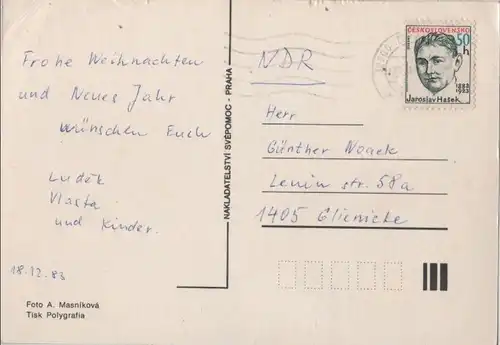 Frohe Weihnachten
und Neues Jahr
wünschen Euch
Luděk
Vlasta
und Kinder.
18.12.83
Foto A. Masníková
Tisk Polygrafia
NAKLADATELSTVÍ SVÉPOMOC - PRAHA
NDR
ČESKOSLOVENSKO
50
h
1883
1923
Jaroslav Hašek
Herr
Günther Noack
Lenin str. 58a
1405 Glienicke